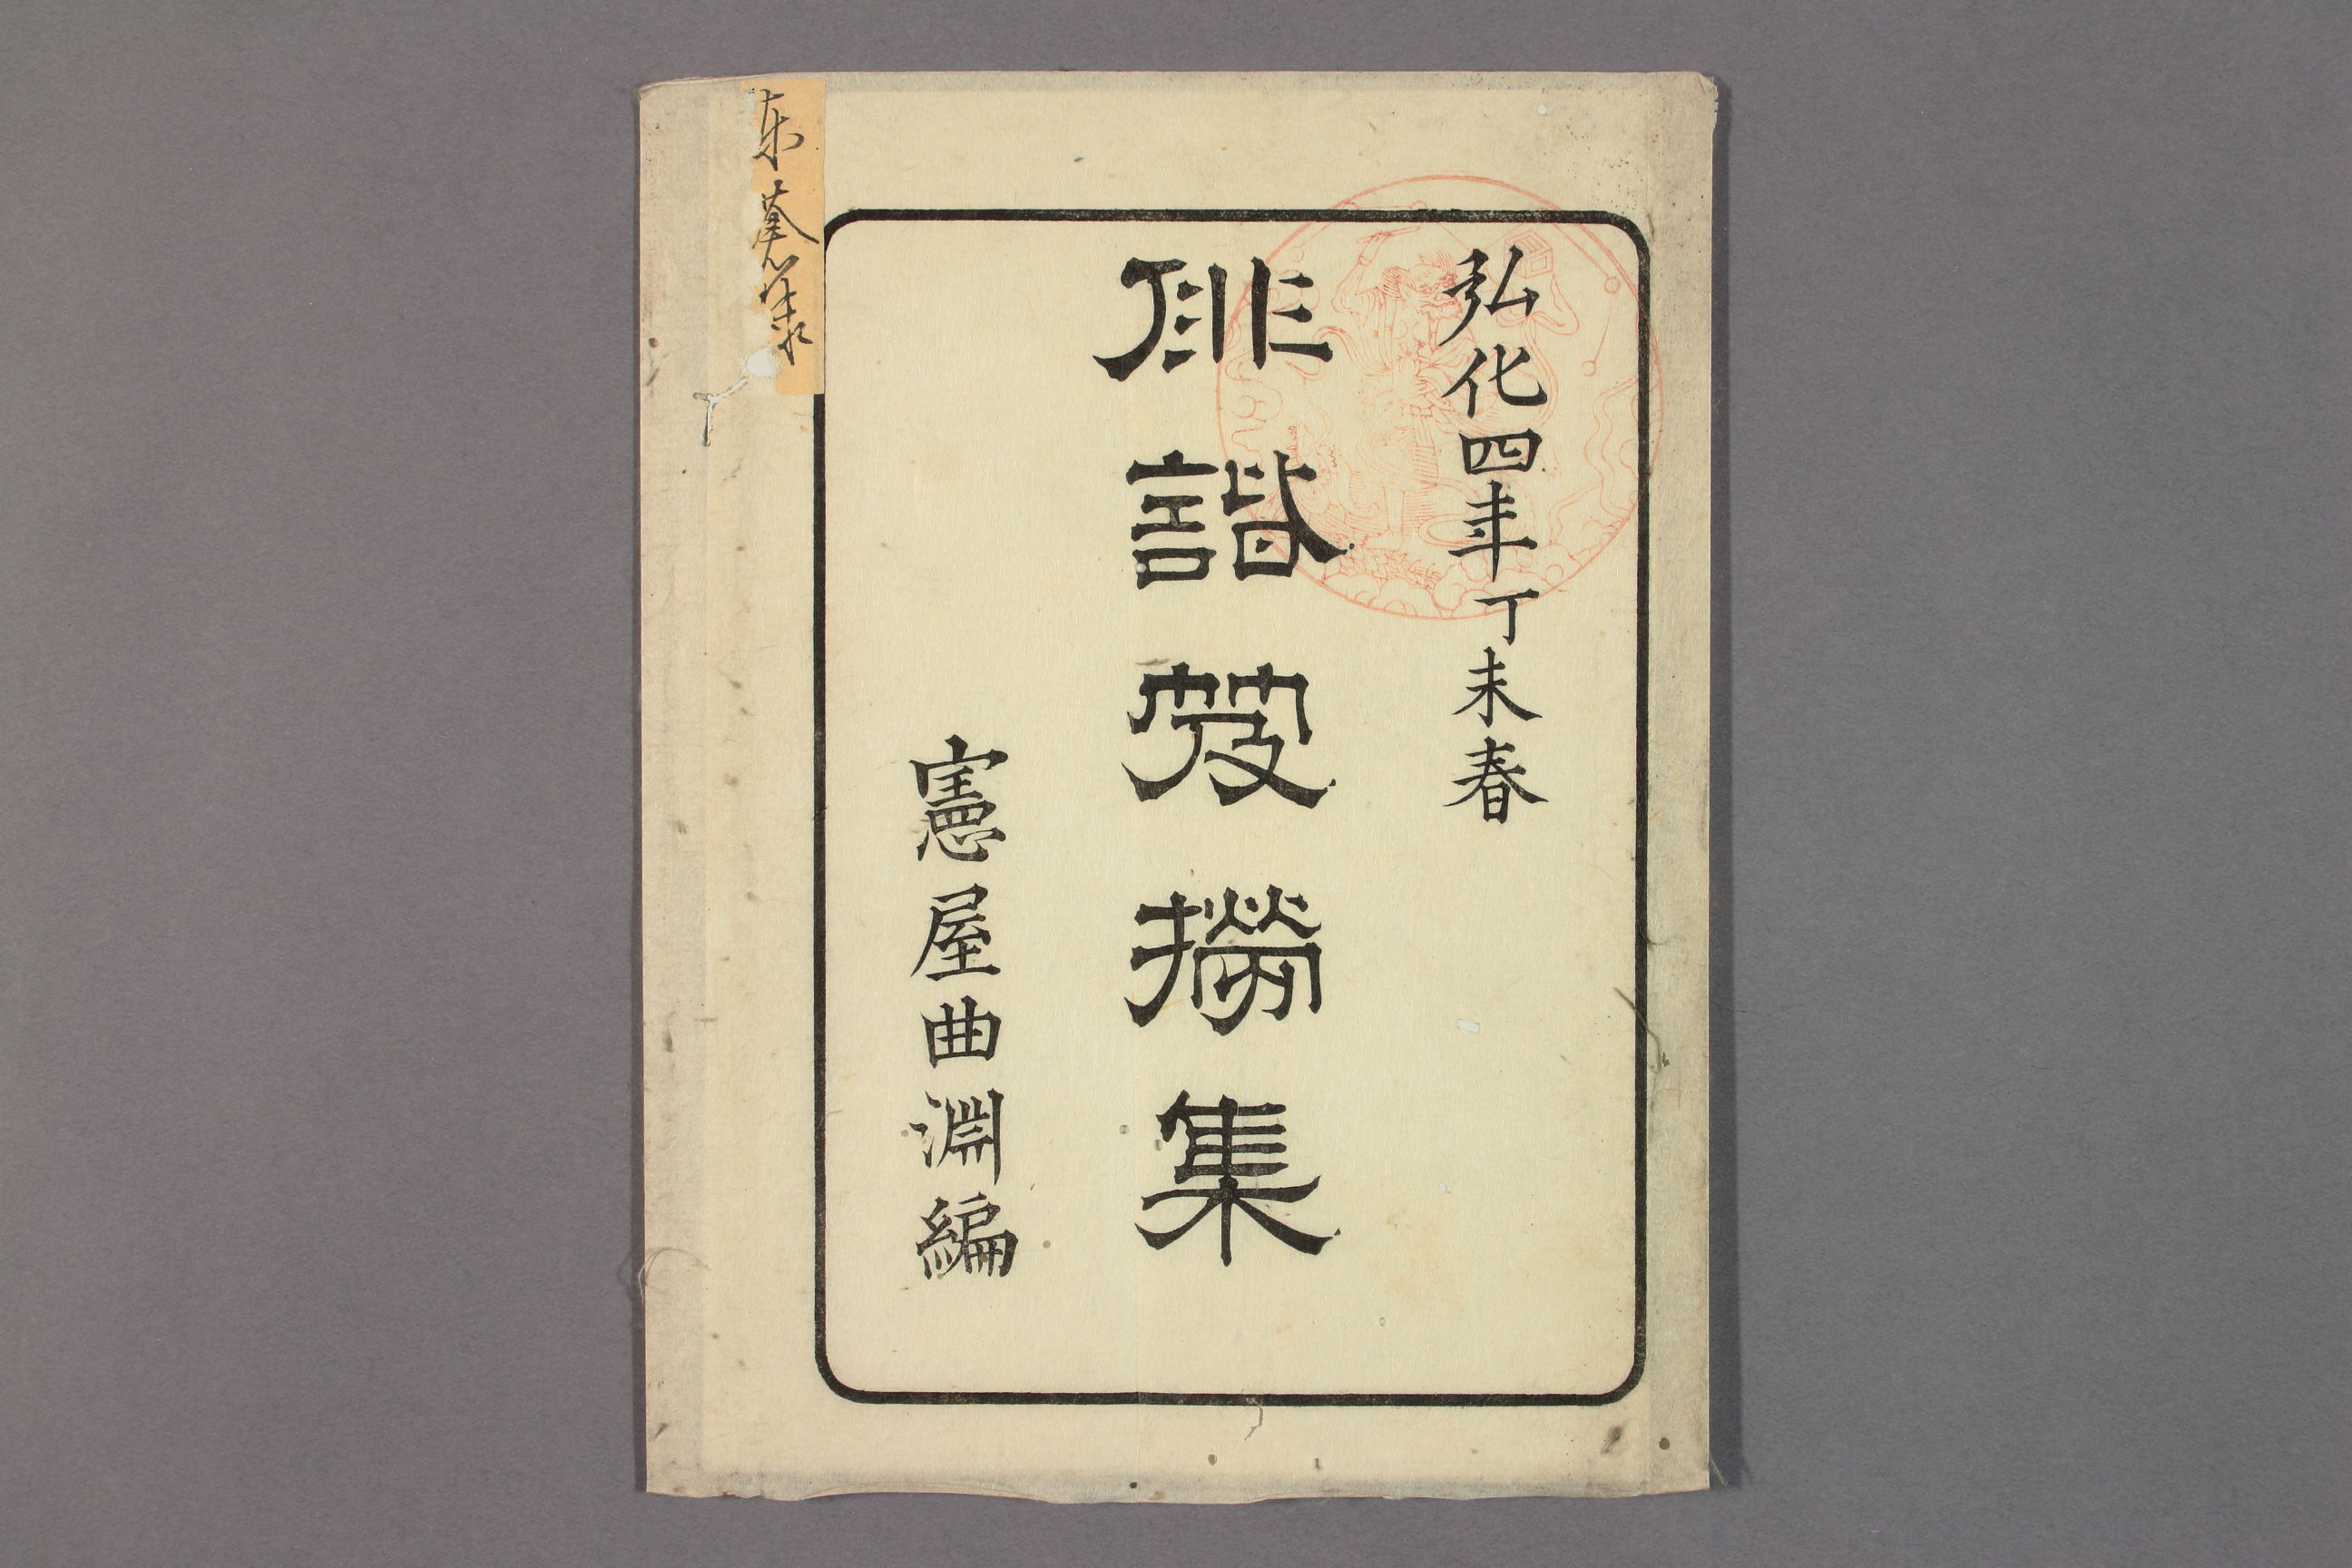 弘化四年丁未春
俳諧芨撈集
憲屋曲淵編